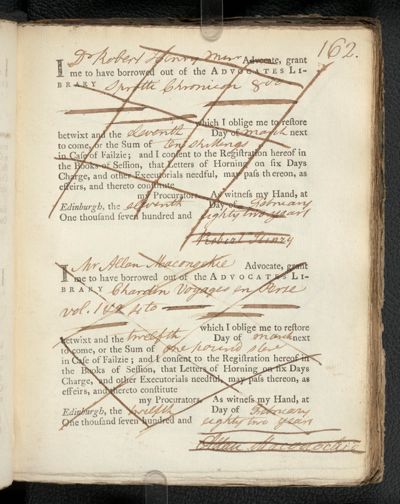 162.
I Dr Robert Henry Advocate, grant
me to have borrowed out of the ADVOCATES LI-
BRARY Sprotts Chronicon 8vo
which I oblige me to restore
betwixt and the eleventh Day of march next
to come, or the Sum of ten shillings
in Caſe of Failzie; and I conſent to the Regiſtration hereof in
the Books of Seſſion, that Letters of Horning on ſix Days
Charge, and other Executorials needful, may paſs thereon, as
effeirs, and thereto conſtitute
my Procurators. As witneſs my Hand, at
Edinburgh, the eleventh Day of February
One thouſand ſeven hundred and eighty two years
Robert Henry
I Mr Allan Maconochie Advocate, grant
me to have borrowed out of the ADVOCATES LI-
BRARY Chardin Voyages en Perse
vol. 1 & 2 4to
which I oblige me to reſtore
betwixt and the twelfth Day of march next
to come, or the Sum of one pound ster
in Caſe of Failzie; and I conſent to the Regiſtration hereof in
the Books of Seſſion, that Letters of Horning on ſix Days
Charge, and other Executorials needful, may paſs thereon, as
effeirs, and thereto conſtitute
my Procurators. As witneſs my Hand, at
Edinburgh, the twelfth Day of February
One thouſand ſeven hundred and eighty two years
Allan Maconochie